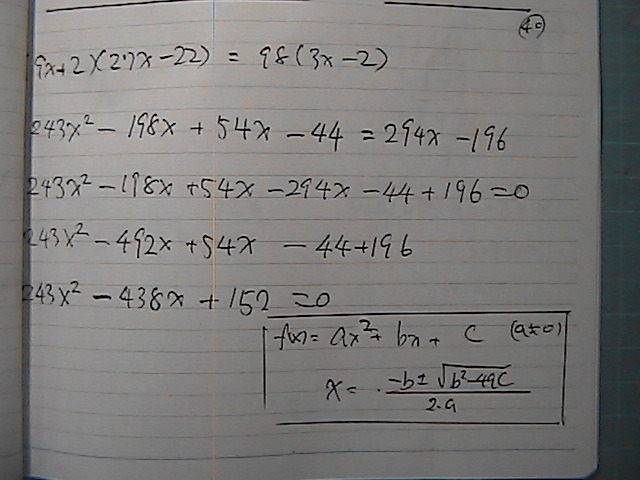 40
9x+2)(27x-22) = 98(3x-2)
243x² - 198x + 54x - 44 = 294x - 196
243x² - 198x + 54x - 294x - 44 + 196 = 0
243x² - 492x + 54x - 44 + 196
243x² - 438x + 152 = 0
f(x) = ax² + bx + c (a≠0)
x = -b ± √b²-4ac / 2.a